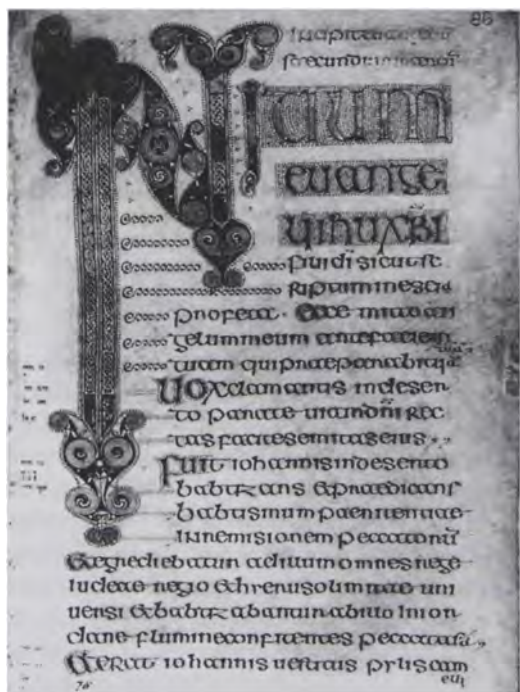 86
Incipit
secundum
INITIUM
EUANGE
LII IHU XPI
fili dī sicut sc
riptum in esaia
profeta · Ecce mitto an
gelum meum ante faciem
tuam qui praeparabit
Uox clamantis in deser
to parate uiam dn̄i rec
tas facite semitas eius
Fuit iohannis in deserto
babtizans & praedicans
babtismum paenitentiae
in remisionem peccatorū
& egrediebatur ad illum omnes rege
iudeae regio & hierusolimitae uni
uersi & babtizabantur ab illo in ior
dane flumine confitentes peccata sua
& erat iohannis uestitus pylis cam
eli